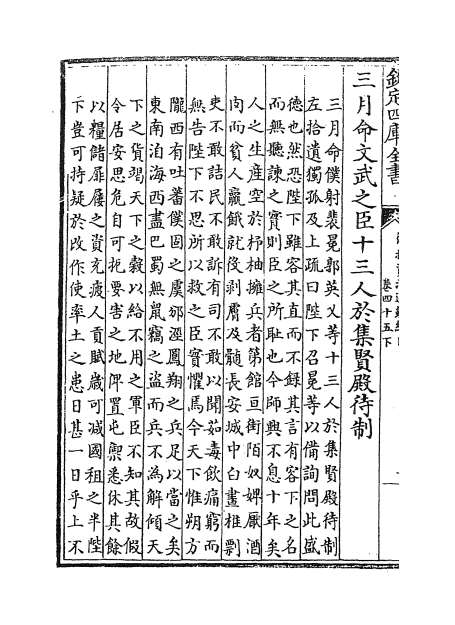 欽定四庫全書
卷四十五下
三月命文武之臣十三人於集賢殿待制
三月命僕射裴冕郭英乂等十三人於集賢殿待制
左拾遺獨孤及上疏曰陛下召冕等以備詢問此盛
德也然恐陛下雖容其直而不録其言有容下之名
而無聽諫之實則臣之所耻也今師興不息十年矣
人之生產空於杼柚擁兵者第館亘街陌奴婢厭酒
肉而貧人羸餓就役剥膚及髓長安城中白晝椎剽
吏不敢詰民不敢訴有司不敢以聞茹毒飲痛窮而
無告陛下不思所以救之臣實懼焉今天下惟朔方
隴西有吐蕃僕固之虞邠涇鳳翔之兵足以當之矣
東南洎海西盡巴蜀無鼠竊之盗而兵不為解傾天
下之貨竭天下之穀以給不用之軍臣不知其故假
令居安思危自可扼要害之地俾置屯禦悉休其餘
以糧儲扉屨之資充疲人貢賦歲可減國租之半陛
下豈可持疑於改作使率土之患日甚一日乎上不